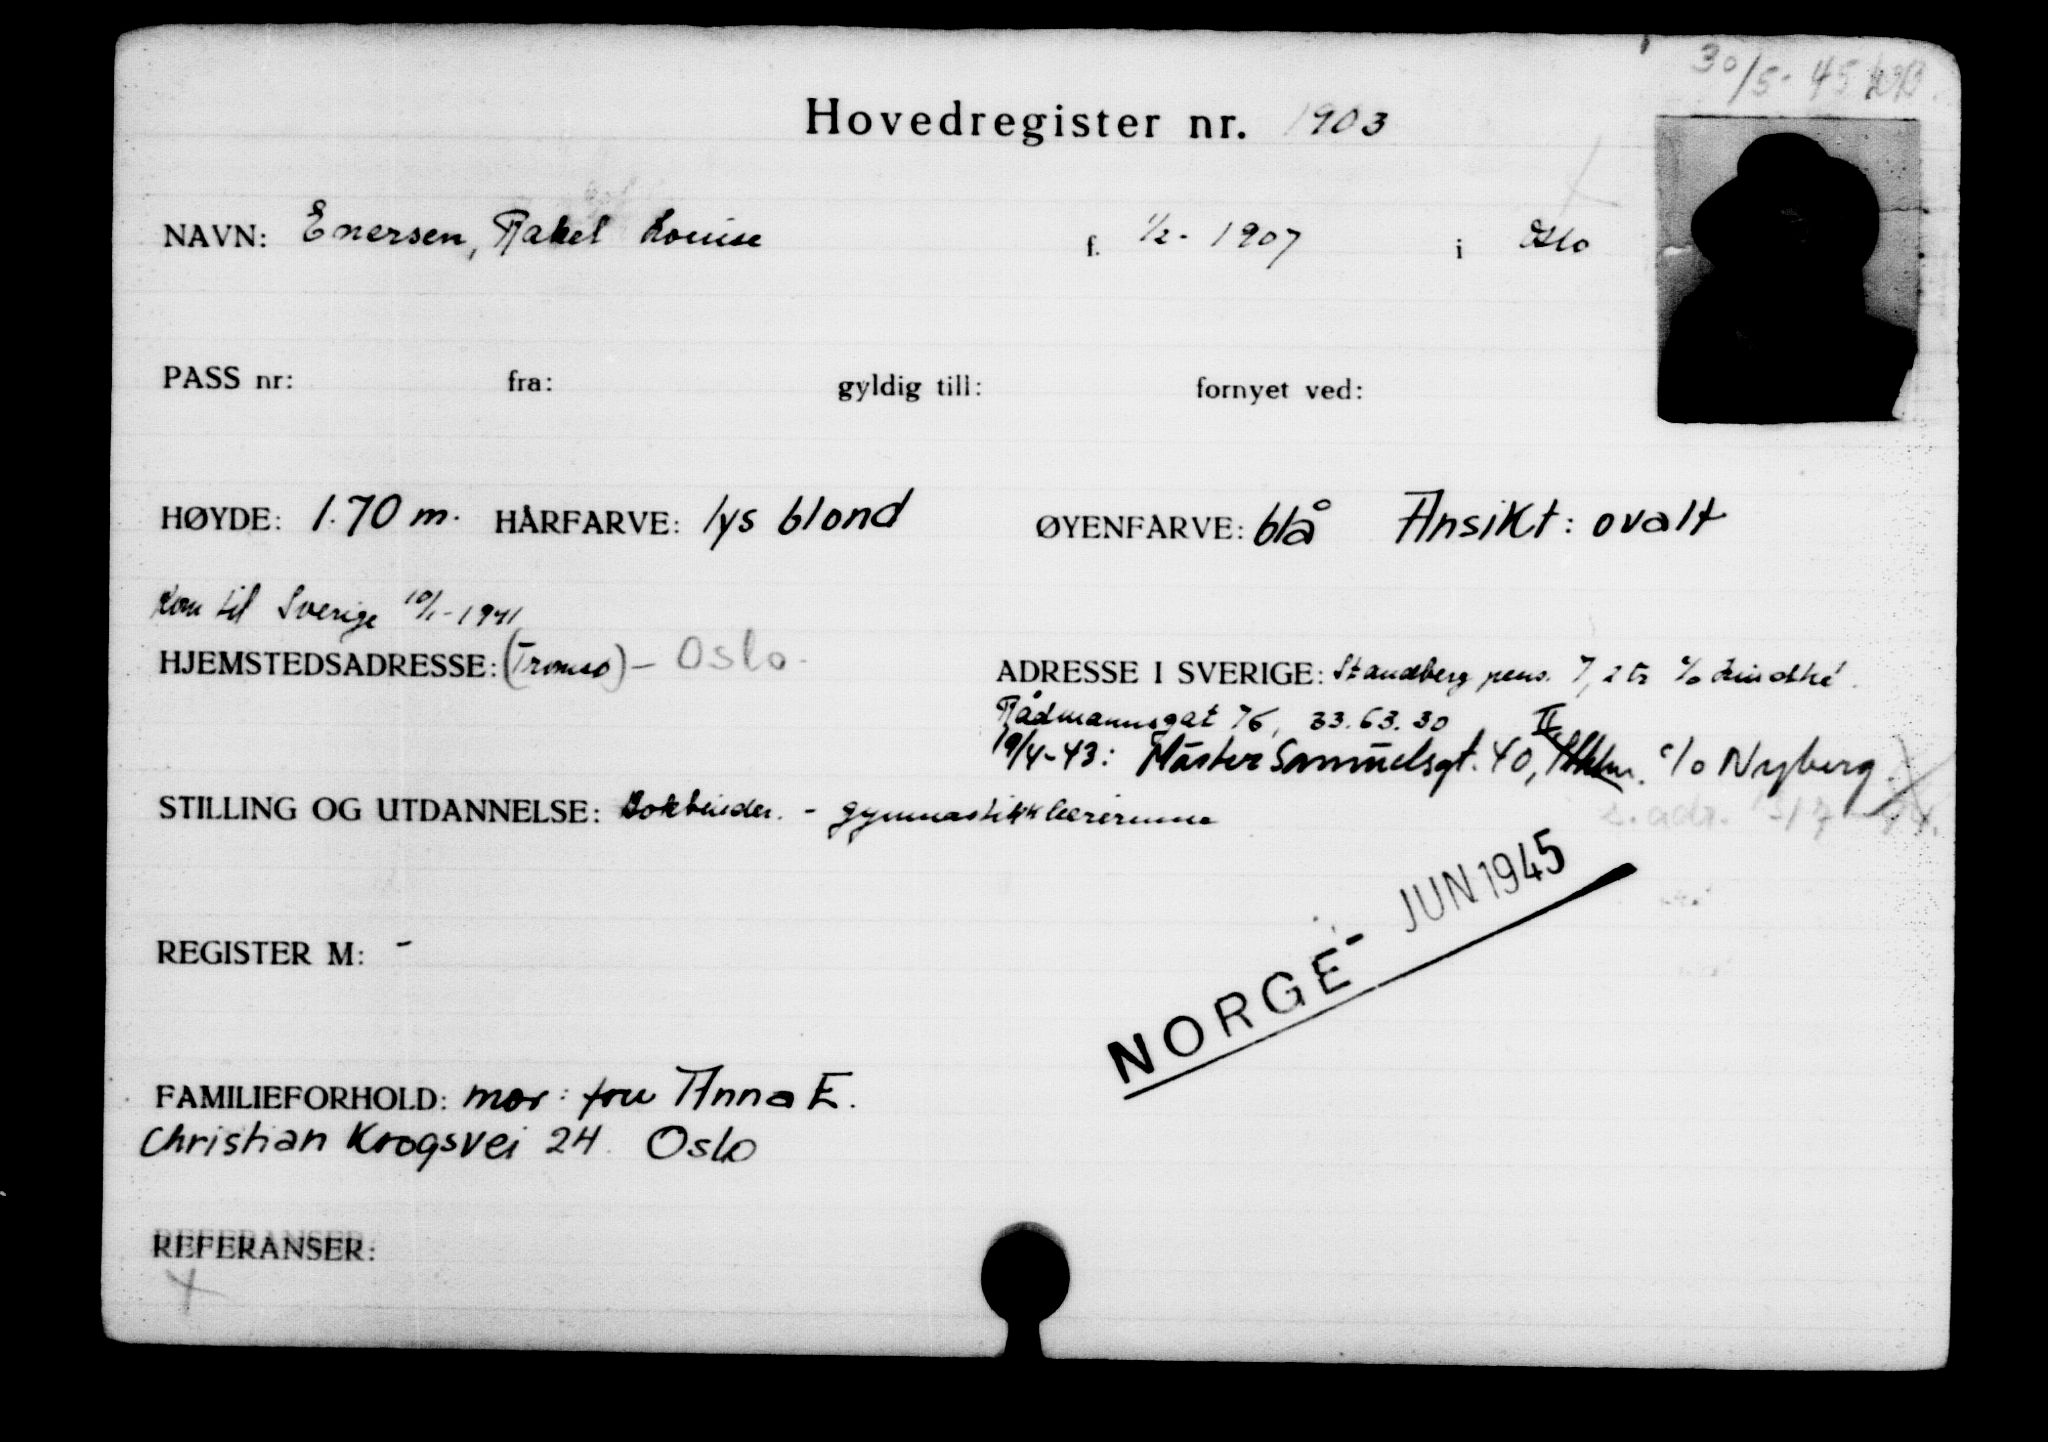 30/5-45
Hovedregister nr. 1903
NAVN: Enersen, Rakel Louise f. 1/2-1907 i Oslo
PASS nr: fra: gyldig till: fornyet ved:
HØYDE: 1.70 m. HÅRFARVE: lys blond ØYENFARVE: blå Ansikt: ovalt
Kom til Sverige 10/1-1941
HJEMSTEDSADRESSE: (Tromsø) - Oslo.
ADRESSE I SVERIGE: Strandberg pens. 7, 2 tr c/o
Rådmannsgat 76, 33.63.30
19/4-43: Mäster Samuelsgt. 40, II Sthlm. c/o Nyberg
STILLING OG UTDANNELSE: Bokbinder. - gymnastikklærerinne
2. adr. 13/7-44.
REGISTER M: -
NORGE - JUN 1945
FAMILIEFORHOLD: mor: fru Anna E.
Christian Krogsvei 24. Oslo
REFERANSER: